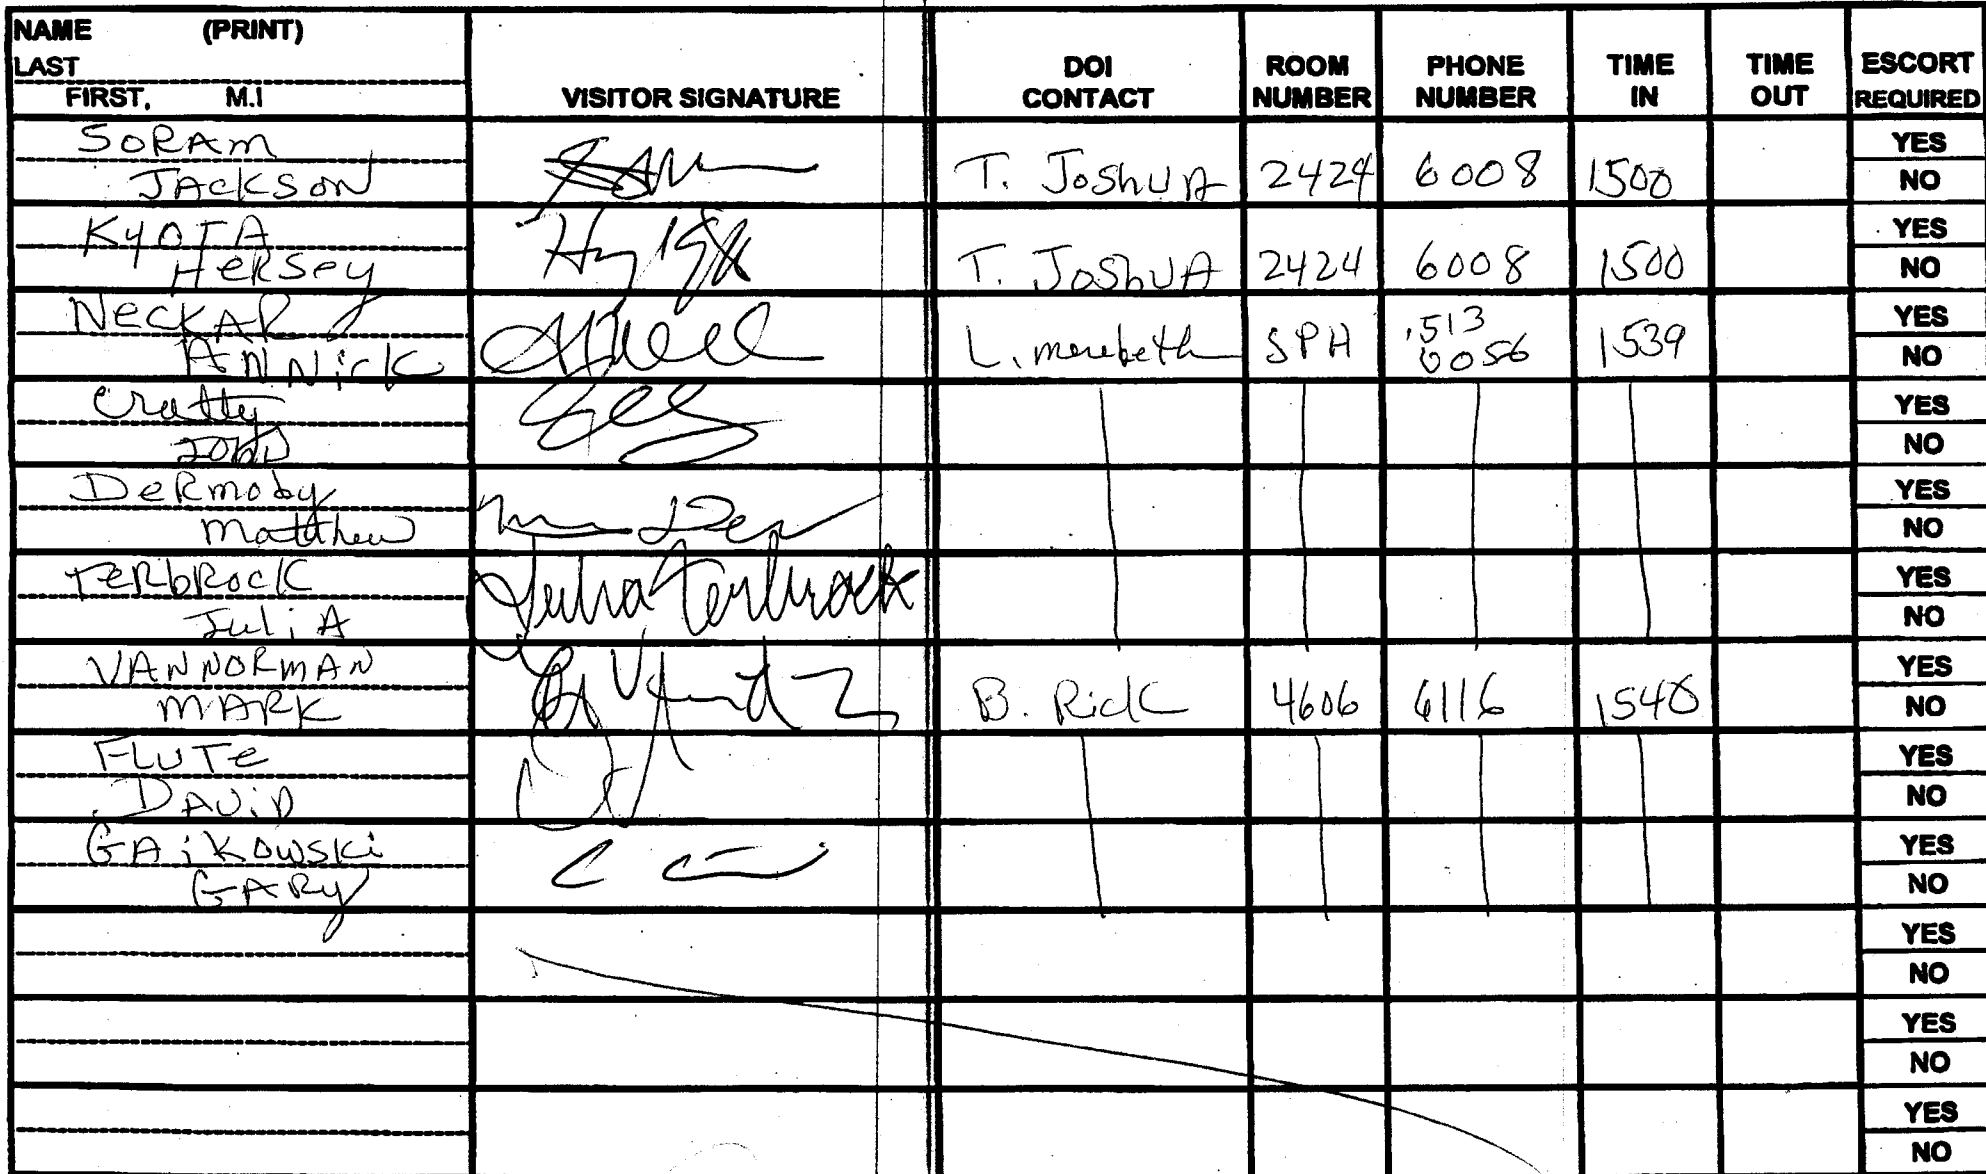 NAME (PRINT)
LAST
FIRST, M.I
VISITOR SIGNATURE
DOI CONTACT
ROOM NUMBER
PHONE NUMBER
TIME IN
TIME OUT
ESCORT REQUIRED
SORAM
JACKSON
T. JOSHUA 2424 6008 1500
YES
NO
KYOTA
HERSEY
T. JOSHUA 2424 6008 1500
YES
NO
NECKAR
ANNICK
L. merebeth SPH 513 0056 1539
YES
NO
Cratty
YES
NO
DeRmody
Matthew
YES
NO
TERbRock
JuliA
Julia Terbrock
YES
NO
VANNORMAN
MARK
B. Rick 4606 6116 1548
YES
NO
FLUTe
DAViD
YES
NO
GAiKOWSKi
GARy
YES
NO
YES
NO
YES
NO
YES
NO